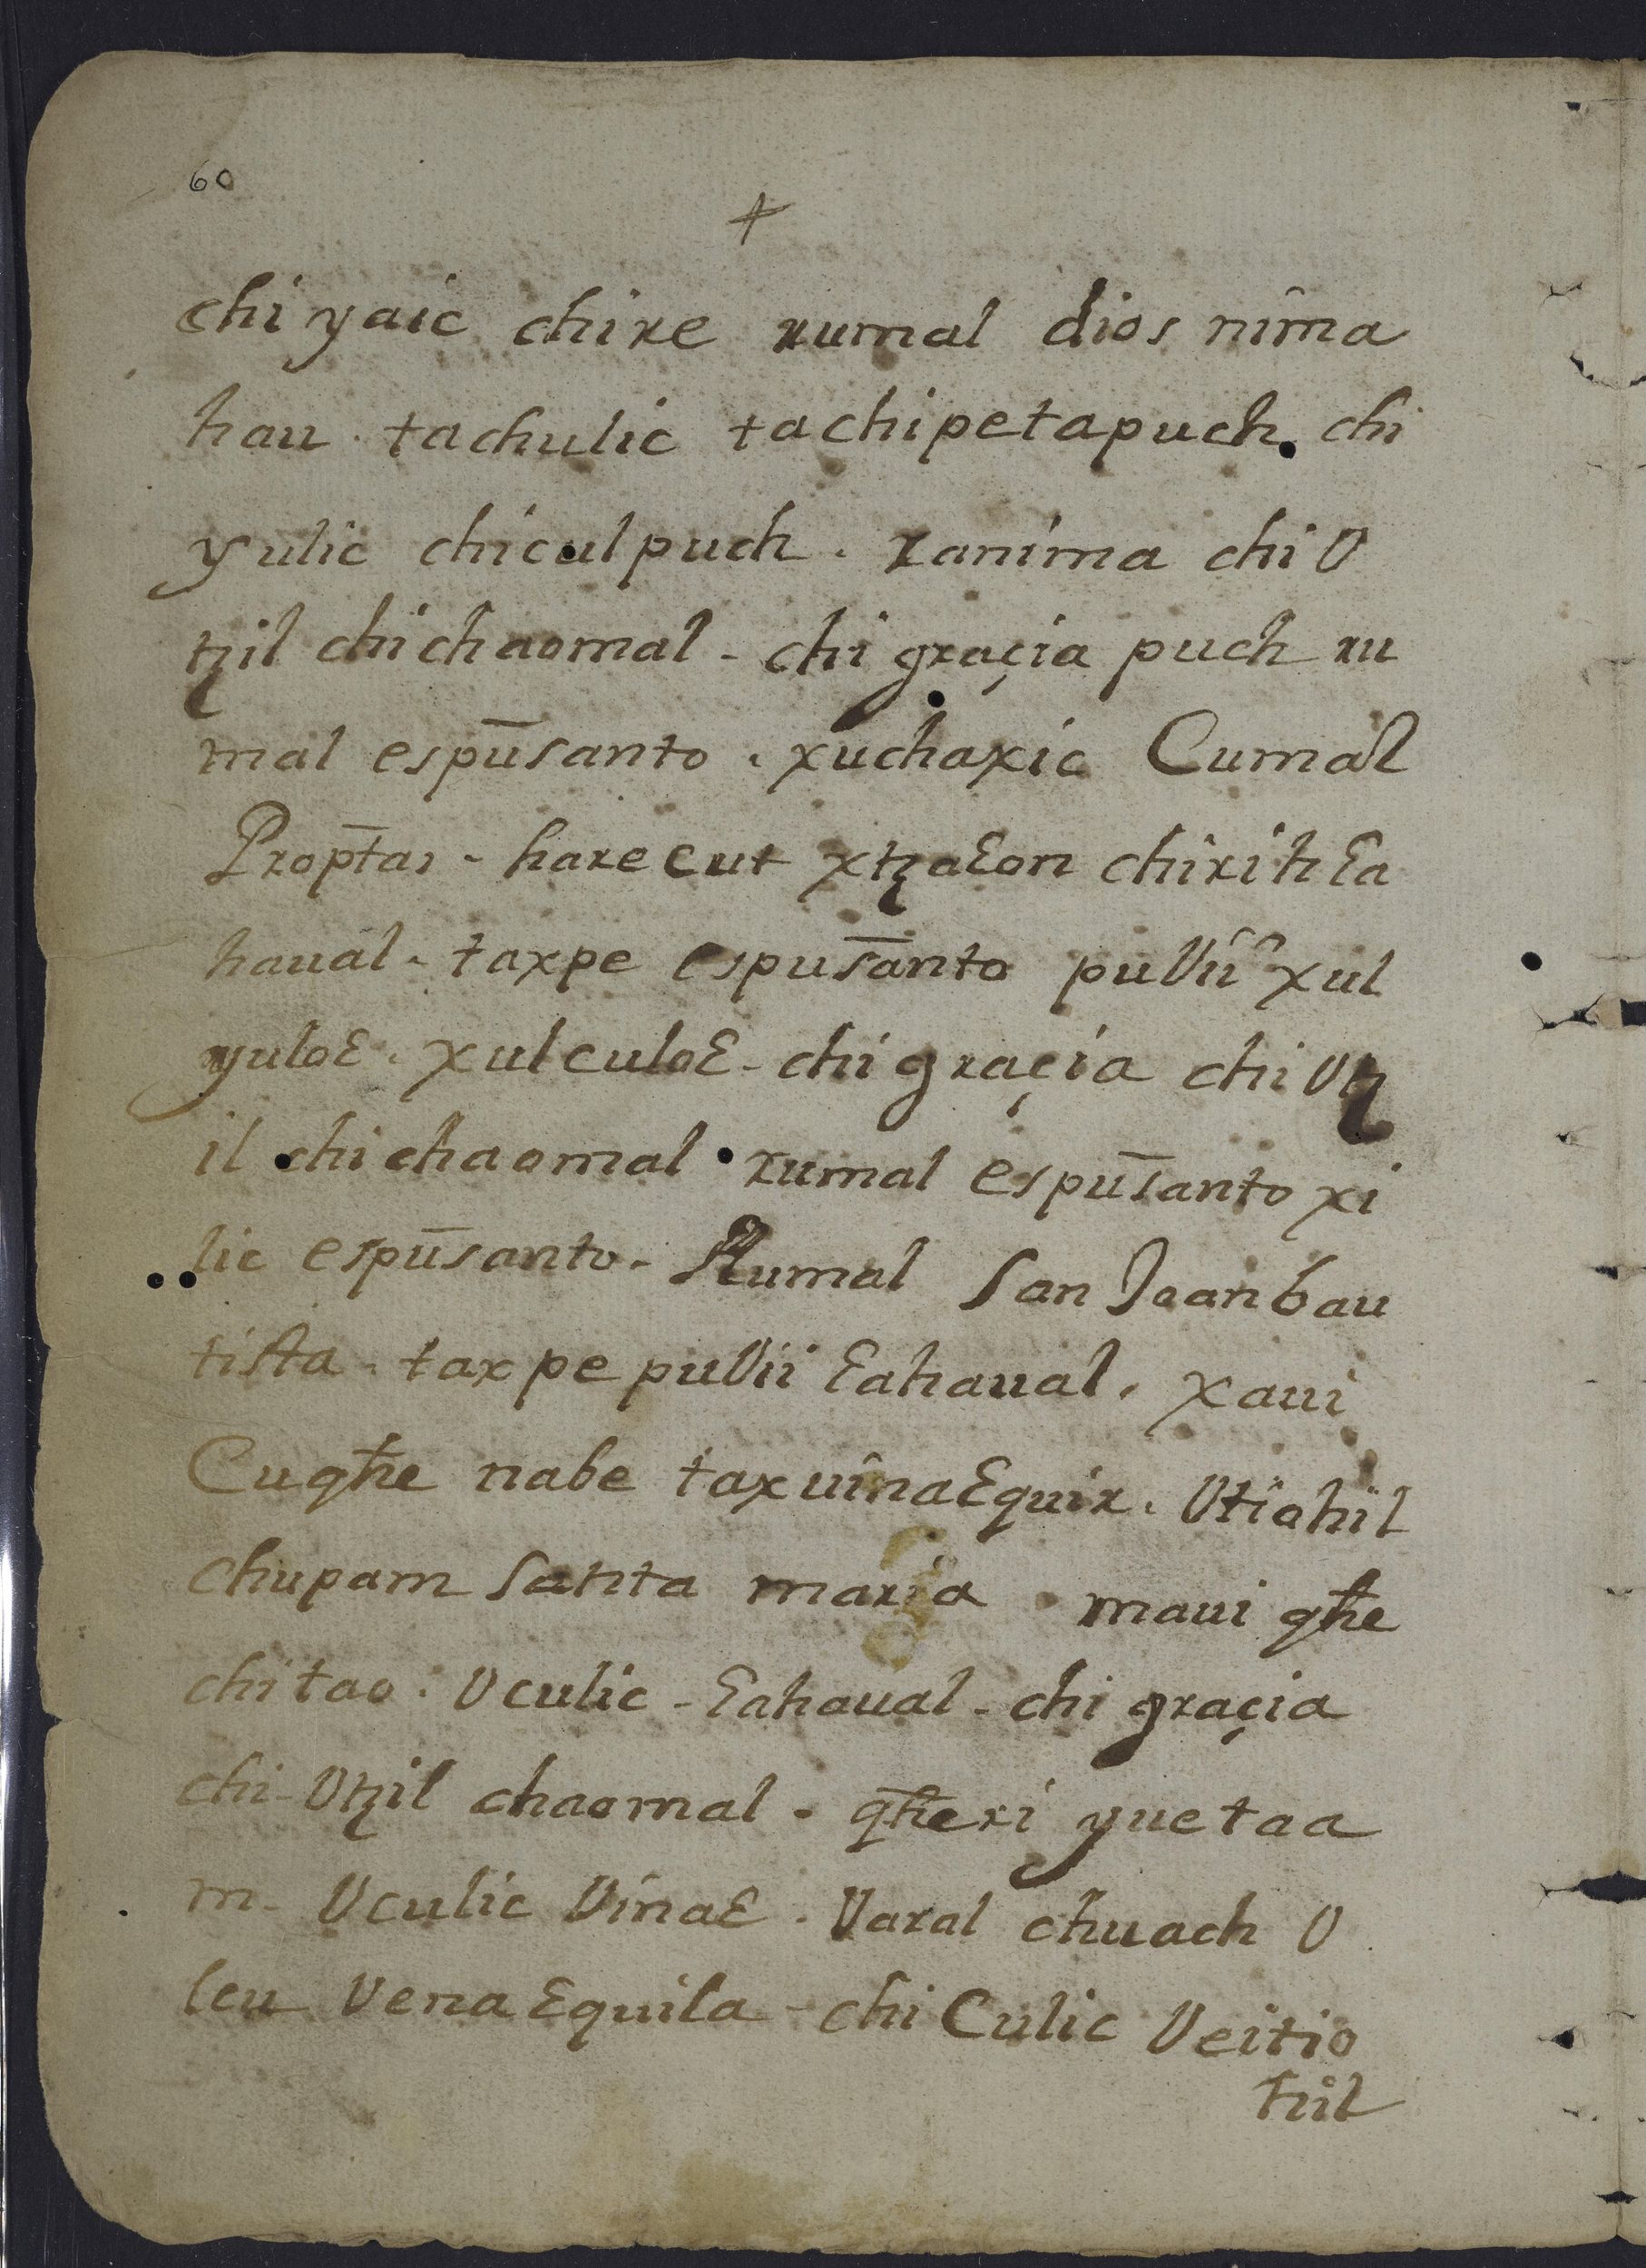 60
+
chi yaic chire rumal dios nima
hau . tachulic tachipetapuch. chi
yulic chiculpuch . ranima chi V
tꜩil chi chaomal - chi graçia puch ru
mal espūsanto . xuchaxic Cumal
Prop̄tas - harecut xtꜩaɛon chirih ɛa
haual - taxpe espus̄anto puVii xul
yuloɛ . xulculoɛ - chi graçia chi Vtꜩ
il chi chaomal . rumal espūsanto xi
lic espūsanto - Rumal San Joan bau
tista . taxpe puVii ɛahaual . xaui
Cuqħe nabe taxuinaɛquir . Vtiohil
chupam santa maria maui qħe
chi tao : Vculic - ɛahaual - chi graçia
chi - Vtꜩil chaomal . qħeri yuetaa
m - Vculic Vinaɛ . Varal chuach V
leu Vena ɛquila - chi Culic Veitio
hil